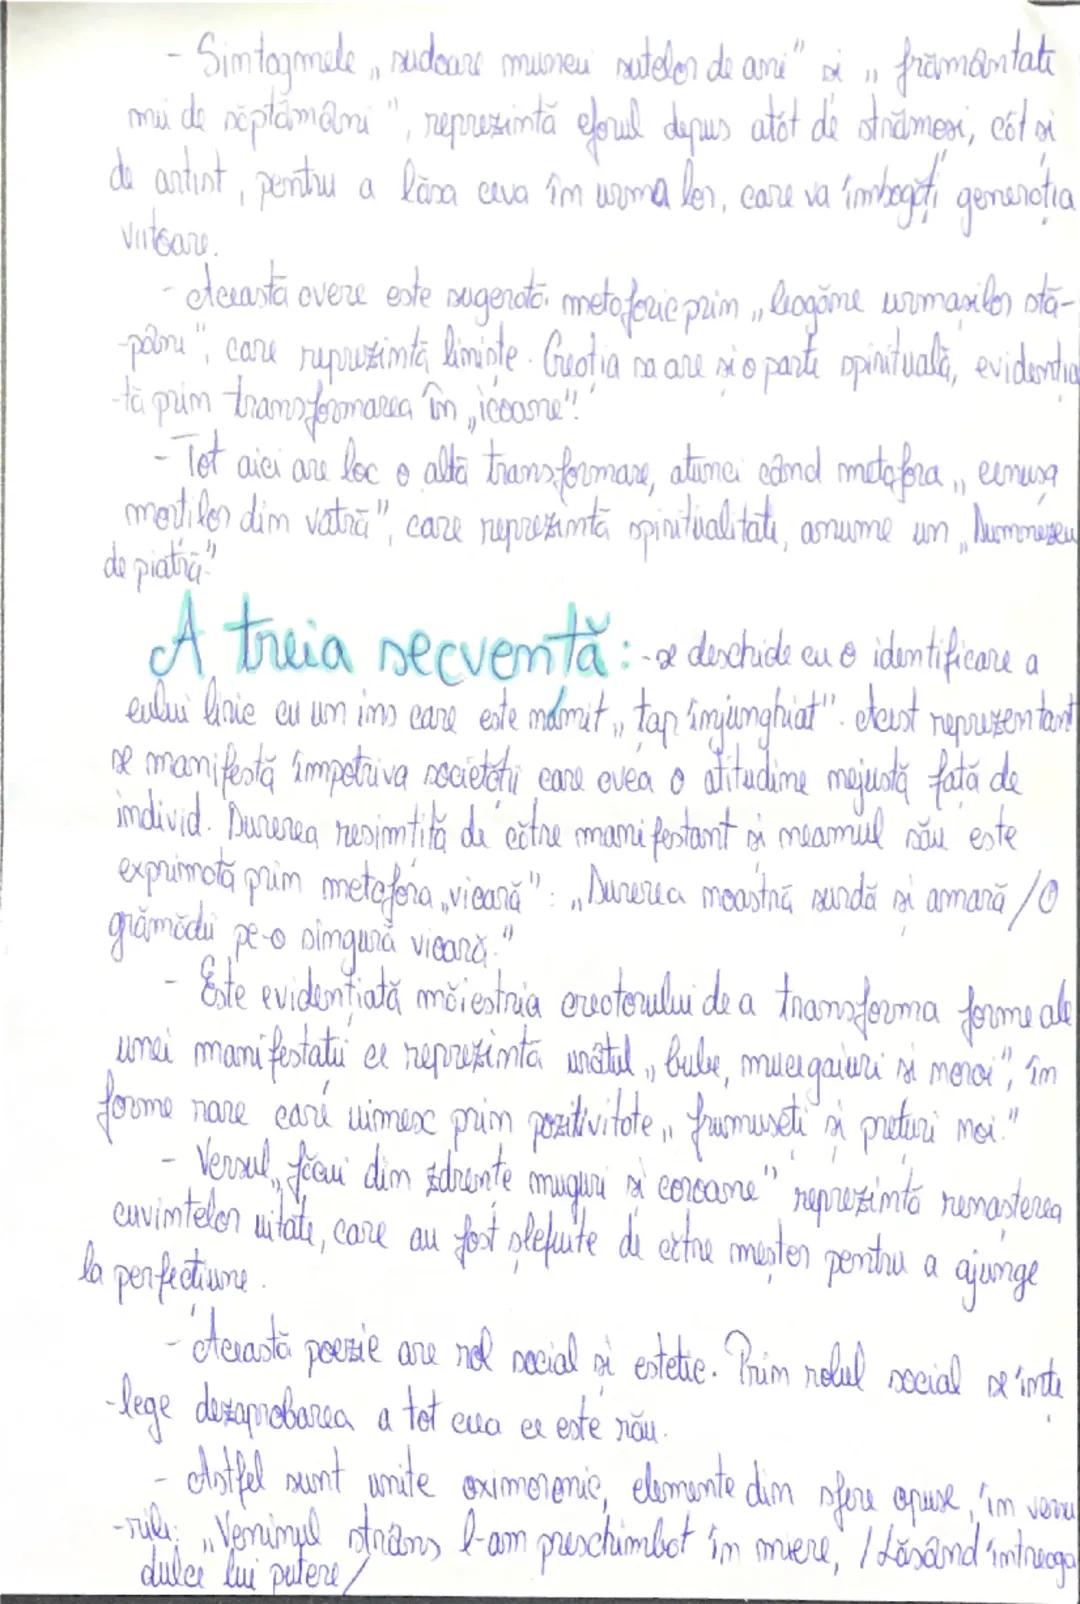 - Sintagmele „sudoare muncii sutelor de ani" și „frământate
mii de săptămâni", reprezintă efortul depus atât de strămoși, cât și
de artist, pentru a lăsa ceva în urma lor, care va îmbogăți generația
viitoare.
- Această avere este sugerată metaforic prim „leogăne urmașilor stă-
-pâni", care reprezintă liniște. Creația sa are și o parte spirituală, evidenția
-tă prim transformarea în „icoane".
- Tot aici are loc o altă transformare, atunci când metafora „cenușa
morților din vatră", care reprezintă spiritualitate, anume un „Dumnezeu
de piatră."
A treia secvență: - se deschide cu o identificare a
eului liric cu un ins care este numit „țap înjunghiat". Acest reprezentant
se manifestă împotriva societății care avea o atitudine nejustă față de
individ. Durerea resimțită de către manifestant și neamul său este
exprimată prin metafora „vioară": „Durerea noastră surdă și amară / O
grămădii pe-o singură vioară."
- Este evidențiată măiestria creatorului de a transforma forme ale
unei manifestatii ce reprezintă urâtul „bube, mucigaiuri și noroi", în
forme rare care uimesc prin pozitivitate „frumuseți și prețuri noi."
- Versul „făcui din zdrențe muguri și coroane" reprezintă renașterea
cuvintelor uitate, care au fost șlefuite de către meșter pentru a ajunge
la perfecțiune.
- Această poezie are rol social și estetic. Prin rolul social se înțe
-lege dezaprobarea a tot ceea ce este rău.
- Astfel sunt unite oximoronic, elemente din sfere opuse, în versu
-rile: „Veninul strâns l-am preschimbat în miere, / Lăsând întreaga
dulce lui putere /